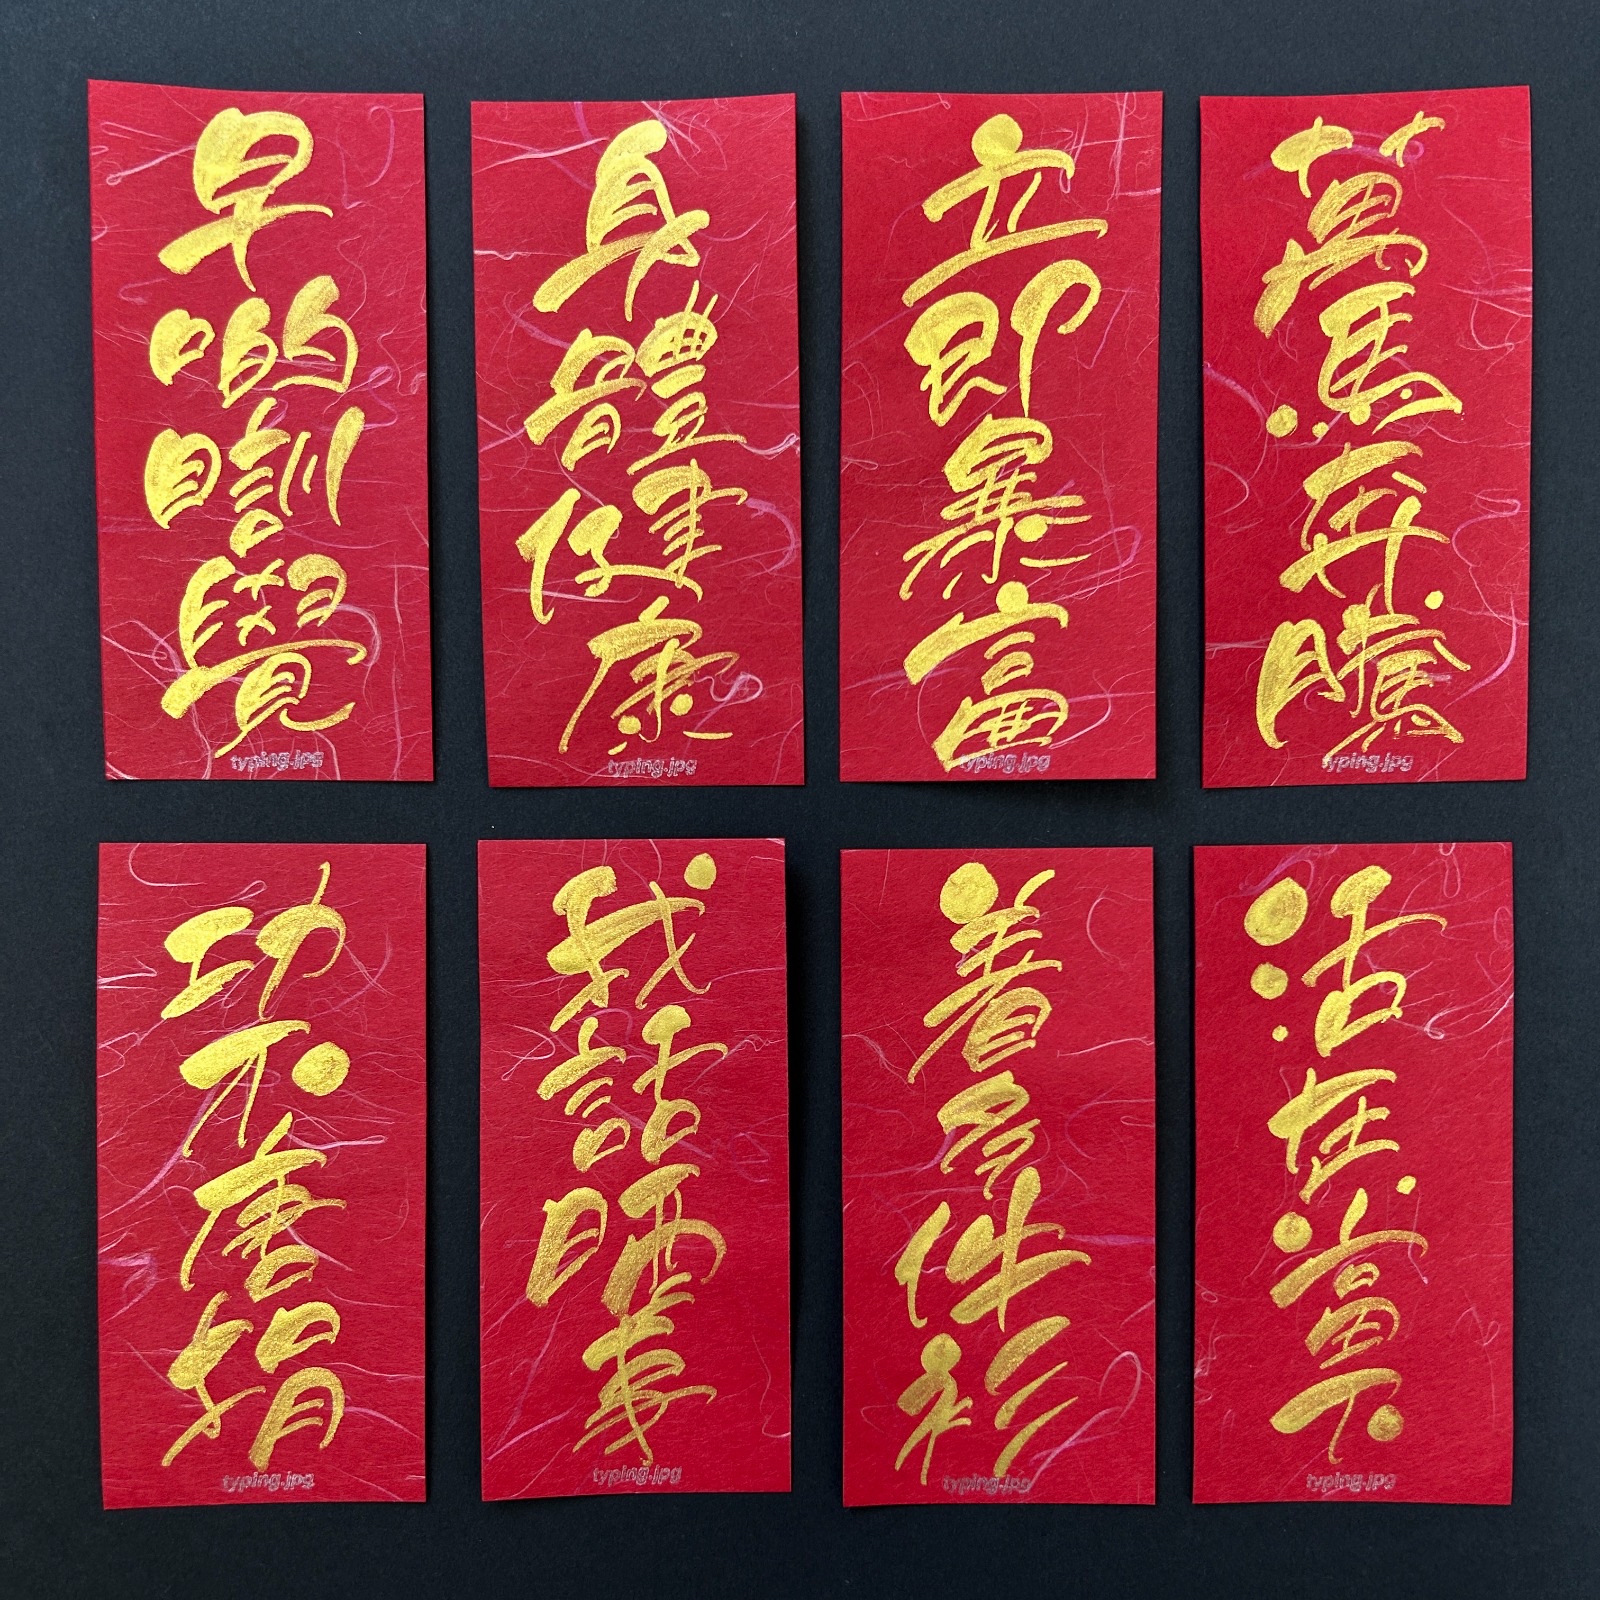 早啲瞓覺
typing.jpg
身體健康
typing.jpg
立即暴富
typing.jpg
萬馬奔騰
typing.jpg
功不唐捐
typing.jpg
我話晒事
typing.jpg
着多件衫
typing.jpg
活在當下
typing.jpg